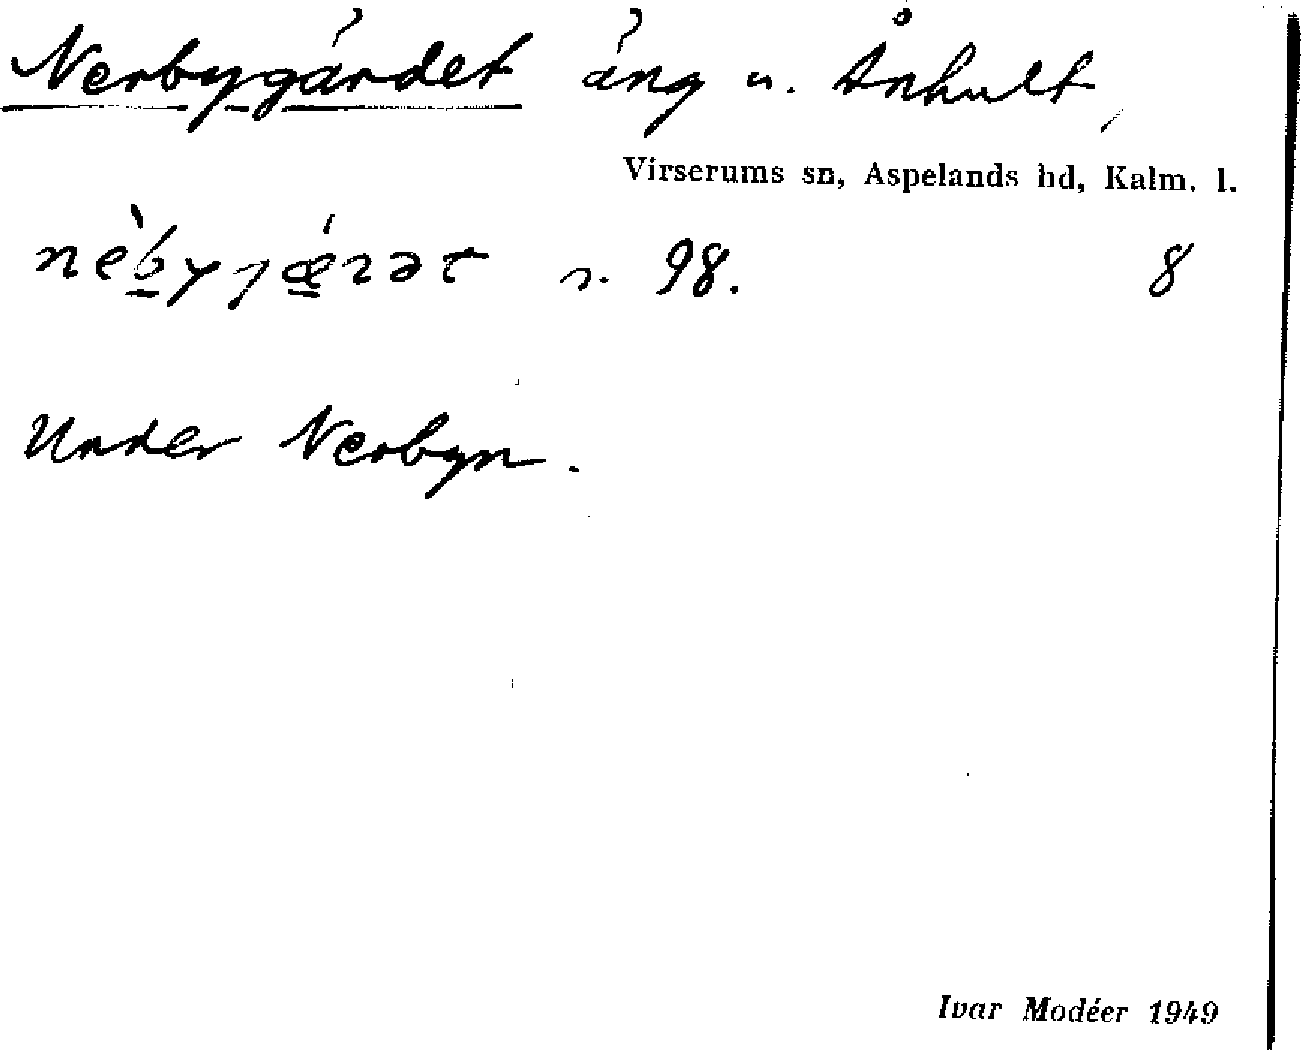 Nerbygärdet äng u. Ånhult,
Virserums sn, Aspelands hd, Kalm. l.
nèb̲yɟǽ̲rət s. 98. 8
Under Nerbyn.
Ivar Modéer 1949